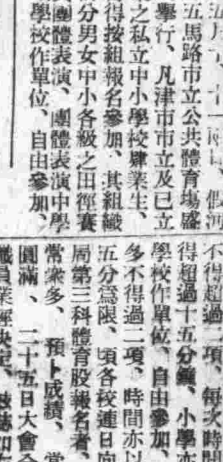 五馬路市立公共體育塲盛
舉行、凡津市市立及已立
之私立中小學校肄業生、
得按組報名參加、其組織
分男女中小各級之田徑賽
團體表演、團體表演中學
學校作單位、自由參加、
不得超過二項、每次時間
得超過十五分鐘、小學亦
學校作單位、自由參加、
多不得過二項、時間亦以
五分爲限、頃各校連日向
局第三科體育股報名者、
常衆多、預卜成績、當
圓滿、二十五日大會全
職員業經決定、